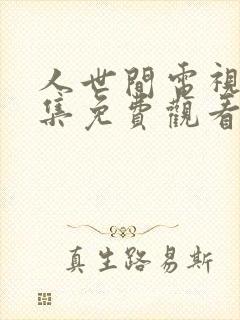 人世間電視
集免費觀看
真生路易斯